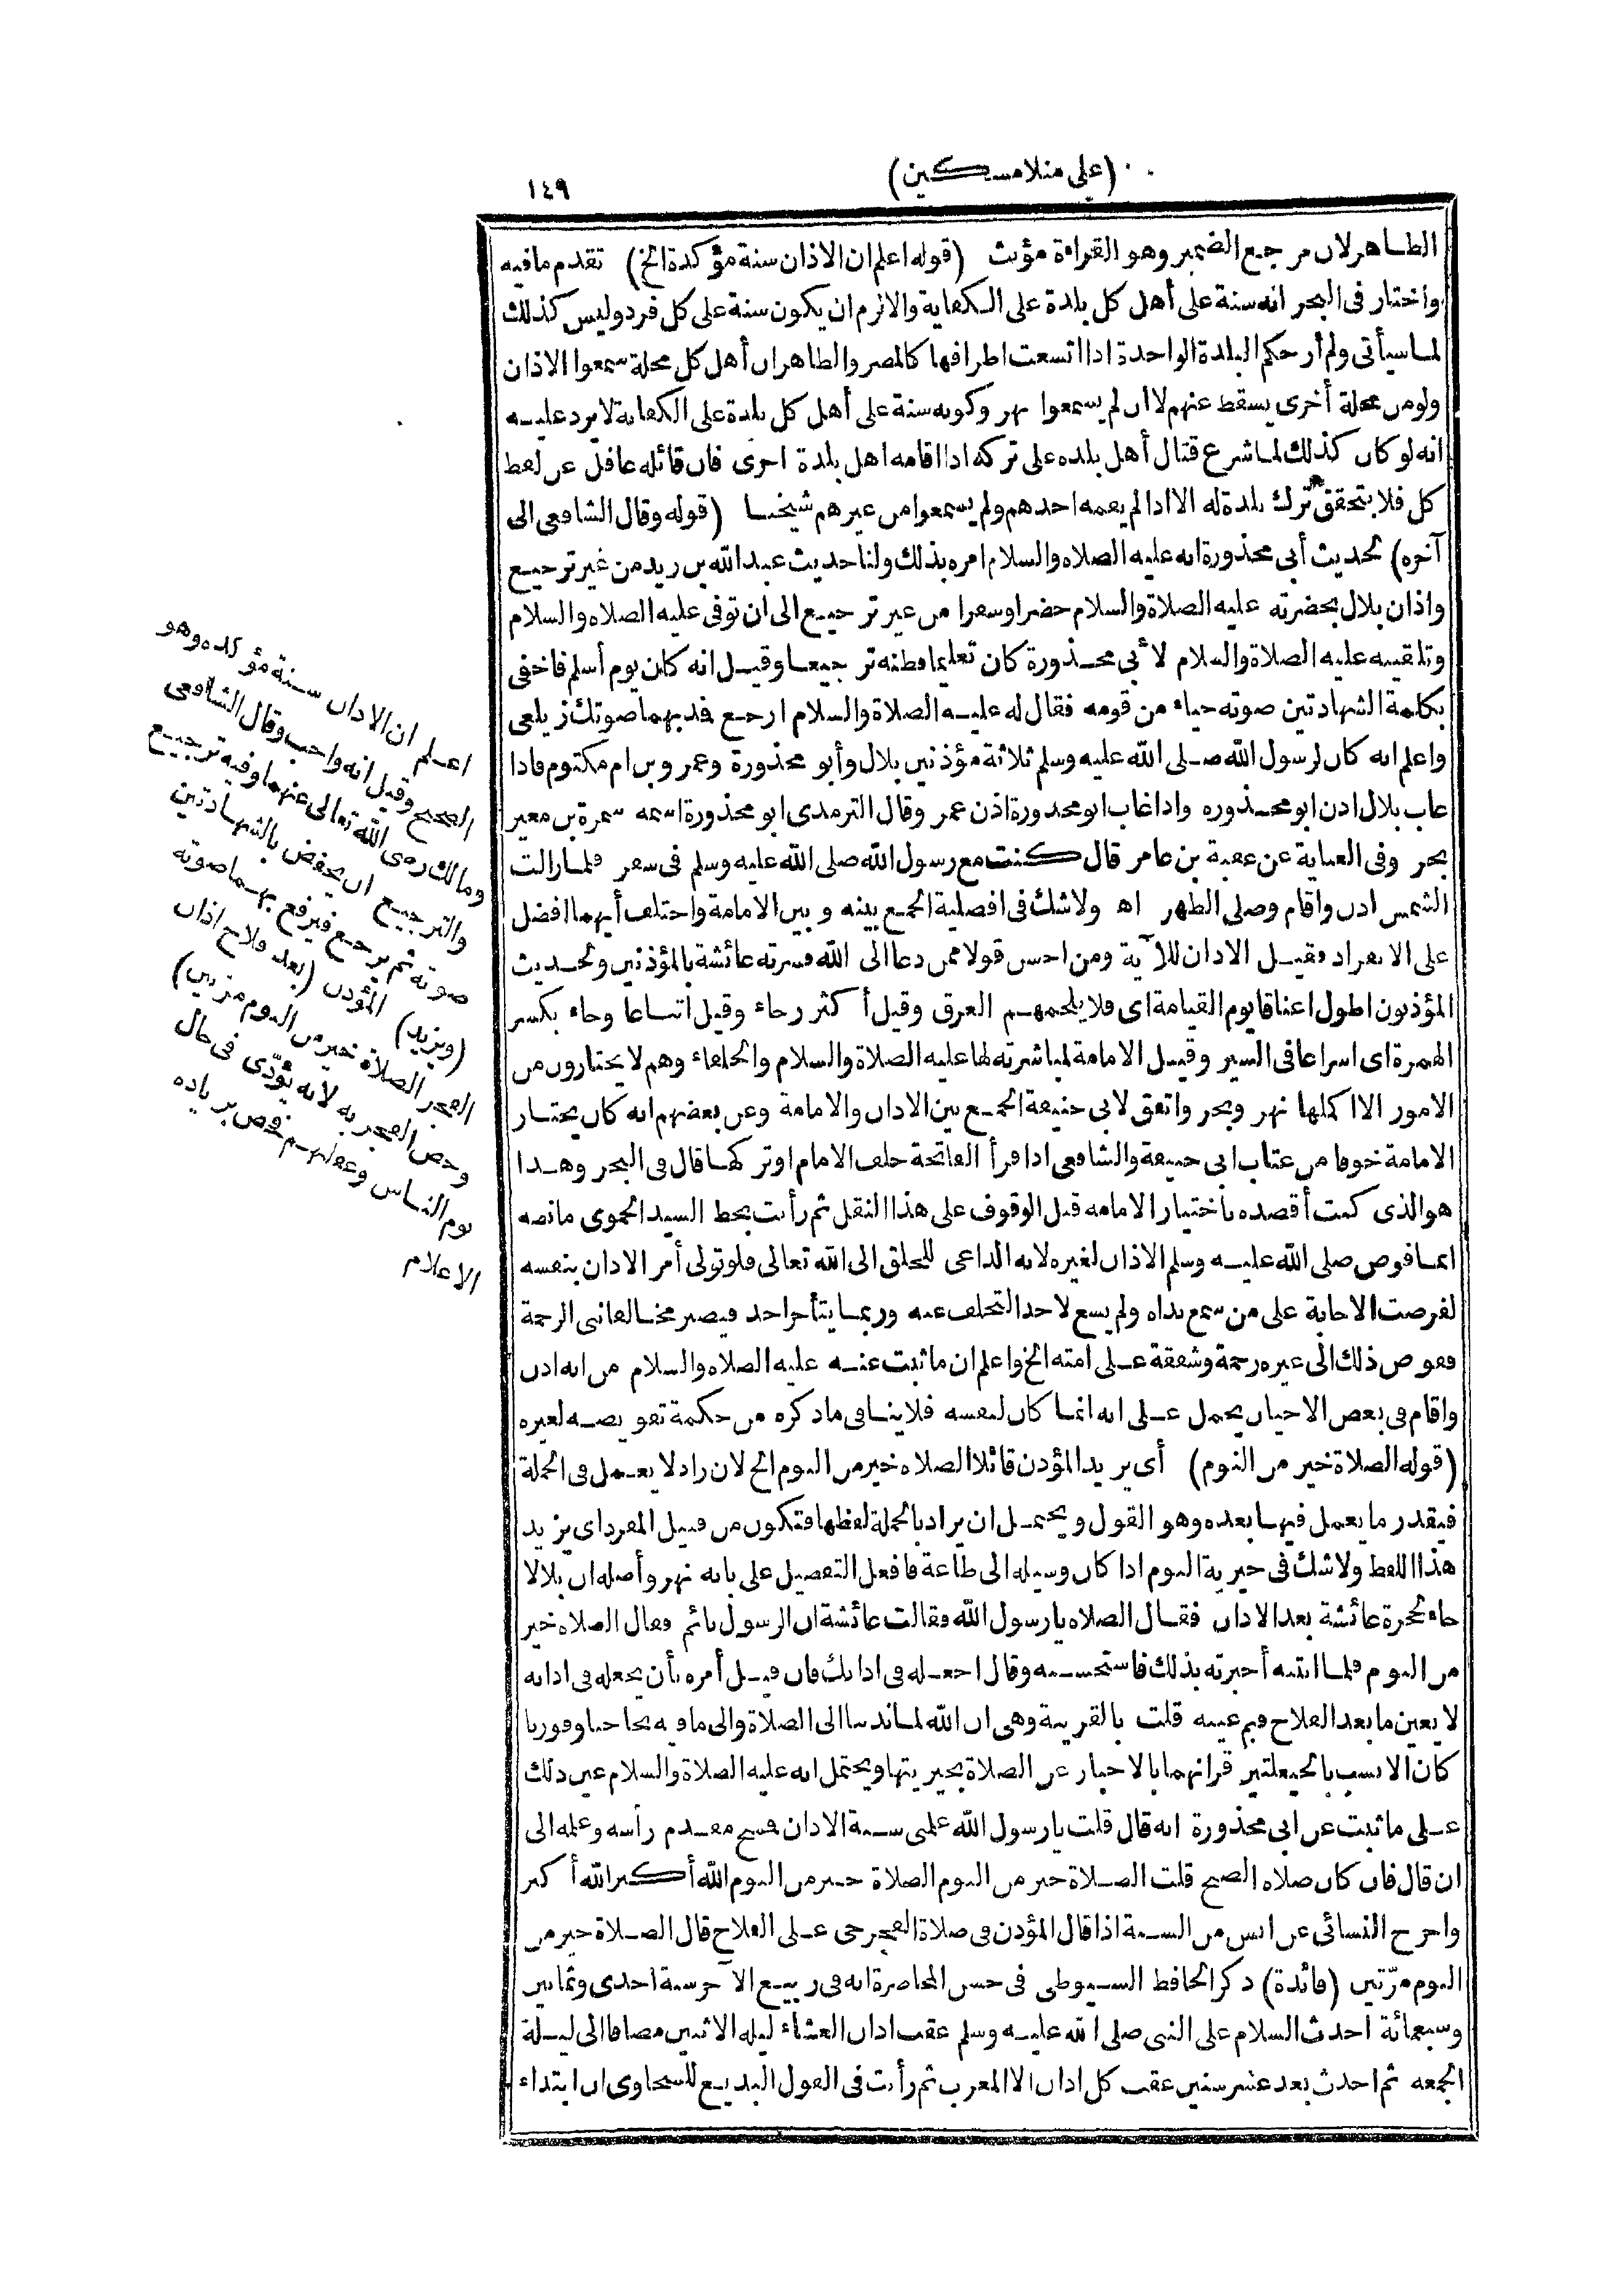 (على منلا مسكين)
١٤٩
الظاهر لان مرجع الضمير وهو القراءة مؤنث (قوله اعلم ان الاذان سنة مؤكدة الخ) تقدم ما فيه
واختار فى البحر انه سنة على أهل كل بلدة على الكفاية والالزم ان يكون سنة على كل فرد وليس كذلك
لما سيأتى ولم أر حكم البلدة الواحدة اذا اتسعت اطرافها كالمصر والظاهر ان أهل كل محلة سمعوا الاذان
ولو من محلة أخرى يسقط عنهم لا ان لم يسمعوا نهر وكونه سنة على أهل كل بلدة على الكفاية لا يرد عليه
انه لو كان كذلك لما شرع قتال أهل بلدة على تركه اذا اقامه اهل بلدة اخرى فان قائله غافل عن لفظ
كل فلا يتحقق ترك بلدة له الا اذا لم يقمه احدهم ولم يسمعوا من غيرهم شيخنا (قوله وقال الشافعى الى
آخره) لحديث أبى محذورة انه عليه الصلاة والسلام امره بذلك ولنا حديث عبد الله بن زيد من غير ترجيع
واذان بلال بحضرته عليه الصلاة والسلام حضرا وسفرا من غير ترجيع الى ان توفى عليه الصلاة والسلام
وتلقينه عليه الصلاة والسلام لأبى محذورة كان تعليما فظنه ترجيعا وقيل انه كان يوم أسلم فاخفى
بكلمة الشهادتين صوته حياء من قومه فقال له عليه الصلاة والسلام ارجع فمد بهما صوتك زيلعى
واعلم انه كان لرسول الله صلى الله عليه وسلم ثلاثة مؤذنين بلال وأبو محذورة وعمرو بن ام مكتوم فاذا
غاب بلال اذن ابو محذورة واذا غاب ابو محذورة اذن عمر وقال الترمذى ابو محذورة اسمه سمرة بن معير
بحر وفى العناية عن عقبة بن عامر قال كنت مع رسول الله صلى الله عليه وسلم فى سفر فلما زالت
الشمس اذن واقام وصلى الظهر اه ولا شك فى افضلية الجمع بينه وبين الامامة واختلف أيهما افضل
على الانفراد فقيل الاذان للآية ومن احسن قولا ممن دعا الى الله فسرته عائشة بالمؤذنين ولحديث
المؤذنون اطول اعناقا يوم القيامة اى فلا يلجمهم العرق وقيل أكثر رجاء وقيل اتباعا وجاء بكسر
الهمزة اى اسراعا فى السير وقيل الامامة لمباشرته لها عليه الصلاة والسلام والخلفاء وهم لا يختارون من
الامور الا اكملها نهر وبحر واتفق لابى حنيفة الجمع بين الاذان والامامة وعن بعضهم انه كان يختار
الامامة خوفا من عتاب ابى حنيفة والشافعى اذا قرأ الفاتحة خلف الامام اوتركها قال فى البحر وهذا
هو الذى كنت أقصده باختيار الامامه قبل الوقوف على هذا النقل ثم رأيت بخط السيد الحموى مانصه
انما فوض صلى الله عليه وسلم الاذان لغيره لانه الداعى للخلق الى الله تعالى فلو تولى أمر الاذان بنفسه
لفرضت الاجابة على من سمع نداه ولم يسع لاحد التخلف عنه وربما يتأخر احد فيصير مخالفا نبى الرحمة
ففوض ذلك الى غيره رحمة وشفقة على امته الخ واعلم ان ما ثبت عنه عليه الصلاة والسلام من انه اذن
واقام فى بعض الاحيان يحمل على انه انما كان لنفسه فلا ينافى ما ذكره من حكمة تفويضه لغيره
(قوله الصلاة خير من النوم) أى يريد المؤذن قائلا الصلاة خير من النوم الخ لان زاد لا يعمل فى الجملة
فيقدر ما يعمل فيها بعده وهو القول ويحتمل ان يراد بالجملة لفظها فتكون من قبيل المفرد اى يزيد
هذا اللفظ ولا شك فى خيرية النوم اذا كان وسيله الى طاعة فافعل التفضيل على بابه نهر وأصله ان بلالا
جاء لحجرة عائشة بعد الاذان فقال الصلاة يا رسول الله فقالت عائشة ان الرسول نائم فقال الصلاة خير
من النوم فلما انتبه أخبرته بذلك فاستحسنه وقال اجعله فى اذانك فان قيل أمره بأن يجعله فى اذانه
لا يعين ما بعد الفلاح فبم عينه قلت بالقرينة وهى ان الله لما ندبنا الى الصلاة والى ما فيه نجاحنا وفوزنا
كان الانسب بالحيعلتين قرانهما بالاخبار عن الصلاة بخيريتها ويحتمل انه عليه الصلاة والسلام عين ذلك
على ما ثبت عن ابى محذورة انه قال قلت يا رسول الله علمنى سنة الاذان فمسح مقدم رأسه وعلمه الى
ان قال فان كان صلاة الصبح قلت الصلاة خير من النوم الصلاة خير من النوم الله أكبر الله أكبر
واخرج النسائى عن انس من السنة اذا قال المؤذن فى صلاة الفجر حى على الفلاح قال الصلاة خير من
النوم مرّتين (فائدة) ذكر الحافظ السيوطى فى حسن المحاضرة انه فى ربيع الآخر سنة احدى وثمانين
وسبعمائة احدث السلام على النبى صلى الله عليه وسلم عقب اذان العشاء ليلة الاثنين مضافا الى ليلة
الجمعة ثم احدث بعد عشر سنين عقب كل اذان الا المغرب ثم رأيت فى القول البديع للسخاوى ان ابتداء
اعلم ان الاذان سنة مؤكده وهو
الصحيح وقيل انه واجب وقال الشافعى
ومالك رضى الله تعالى عنهما وفيه ترجيع
والترجيع ان يخفض بالشهادتين
صوته ثم يرجع فيرفع بهما صوته
(ويزيد) المؤذن (بعد فلاح اذان
الفجر الصلاة خير من النوم مرتين)
وخص الفجر به لانه يؤدّى فى حال
نوم الناس وغفلتهم فخص بزياده
الاعلام